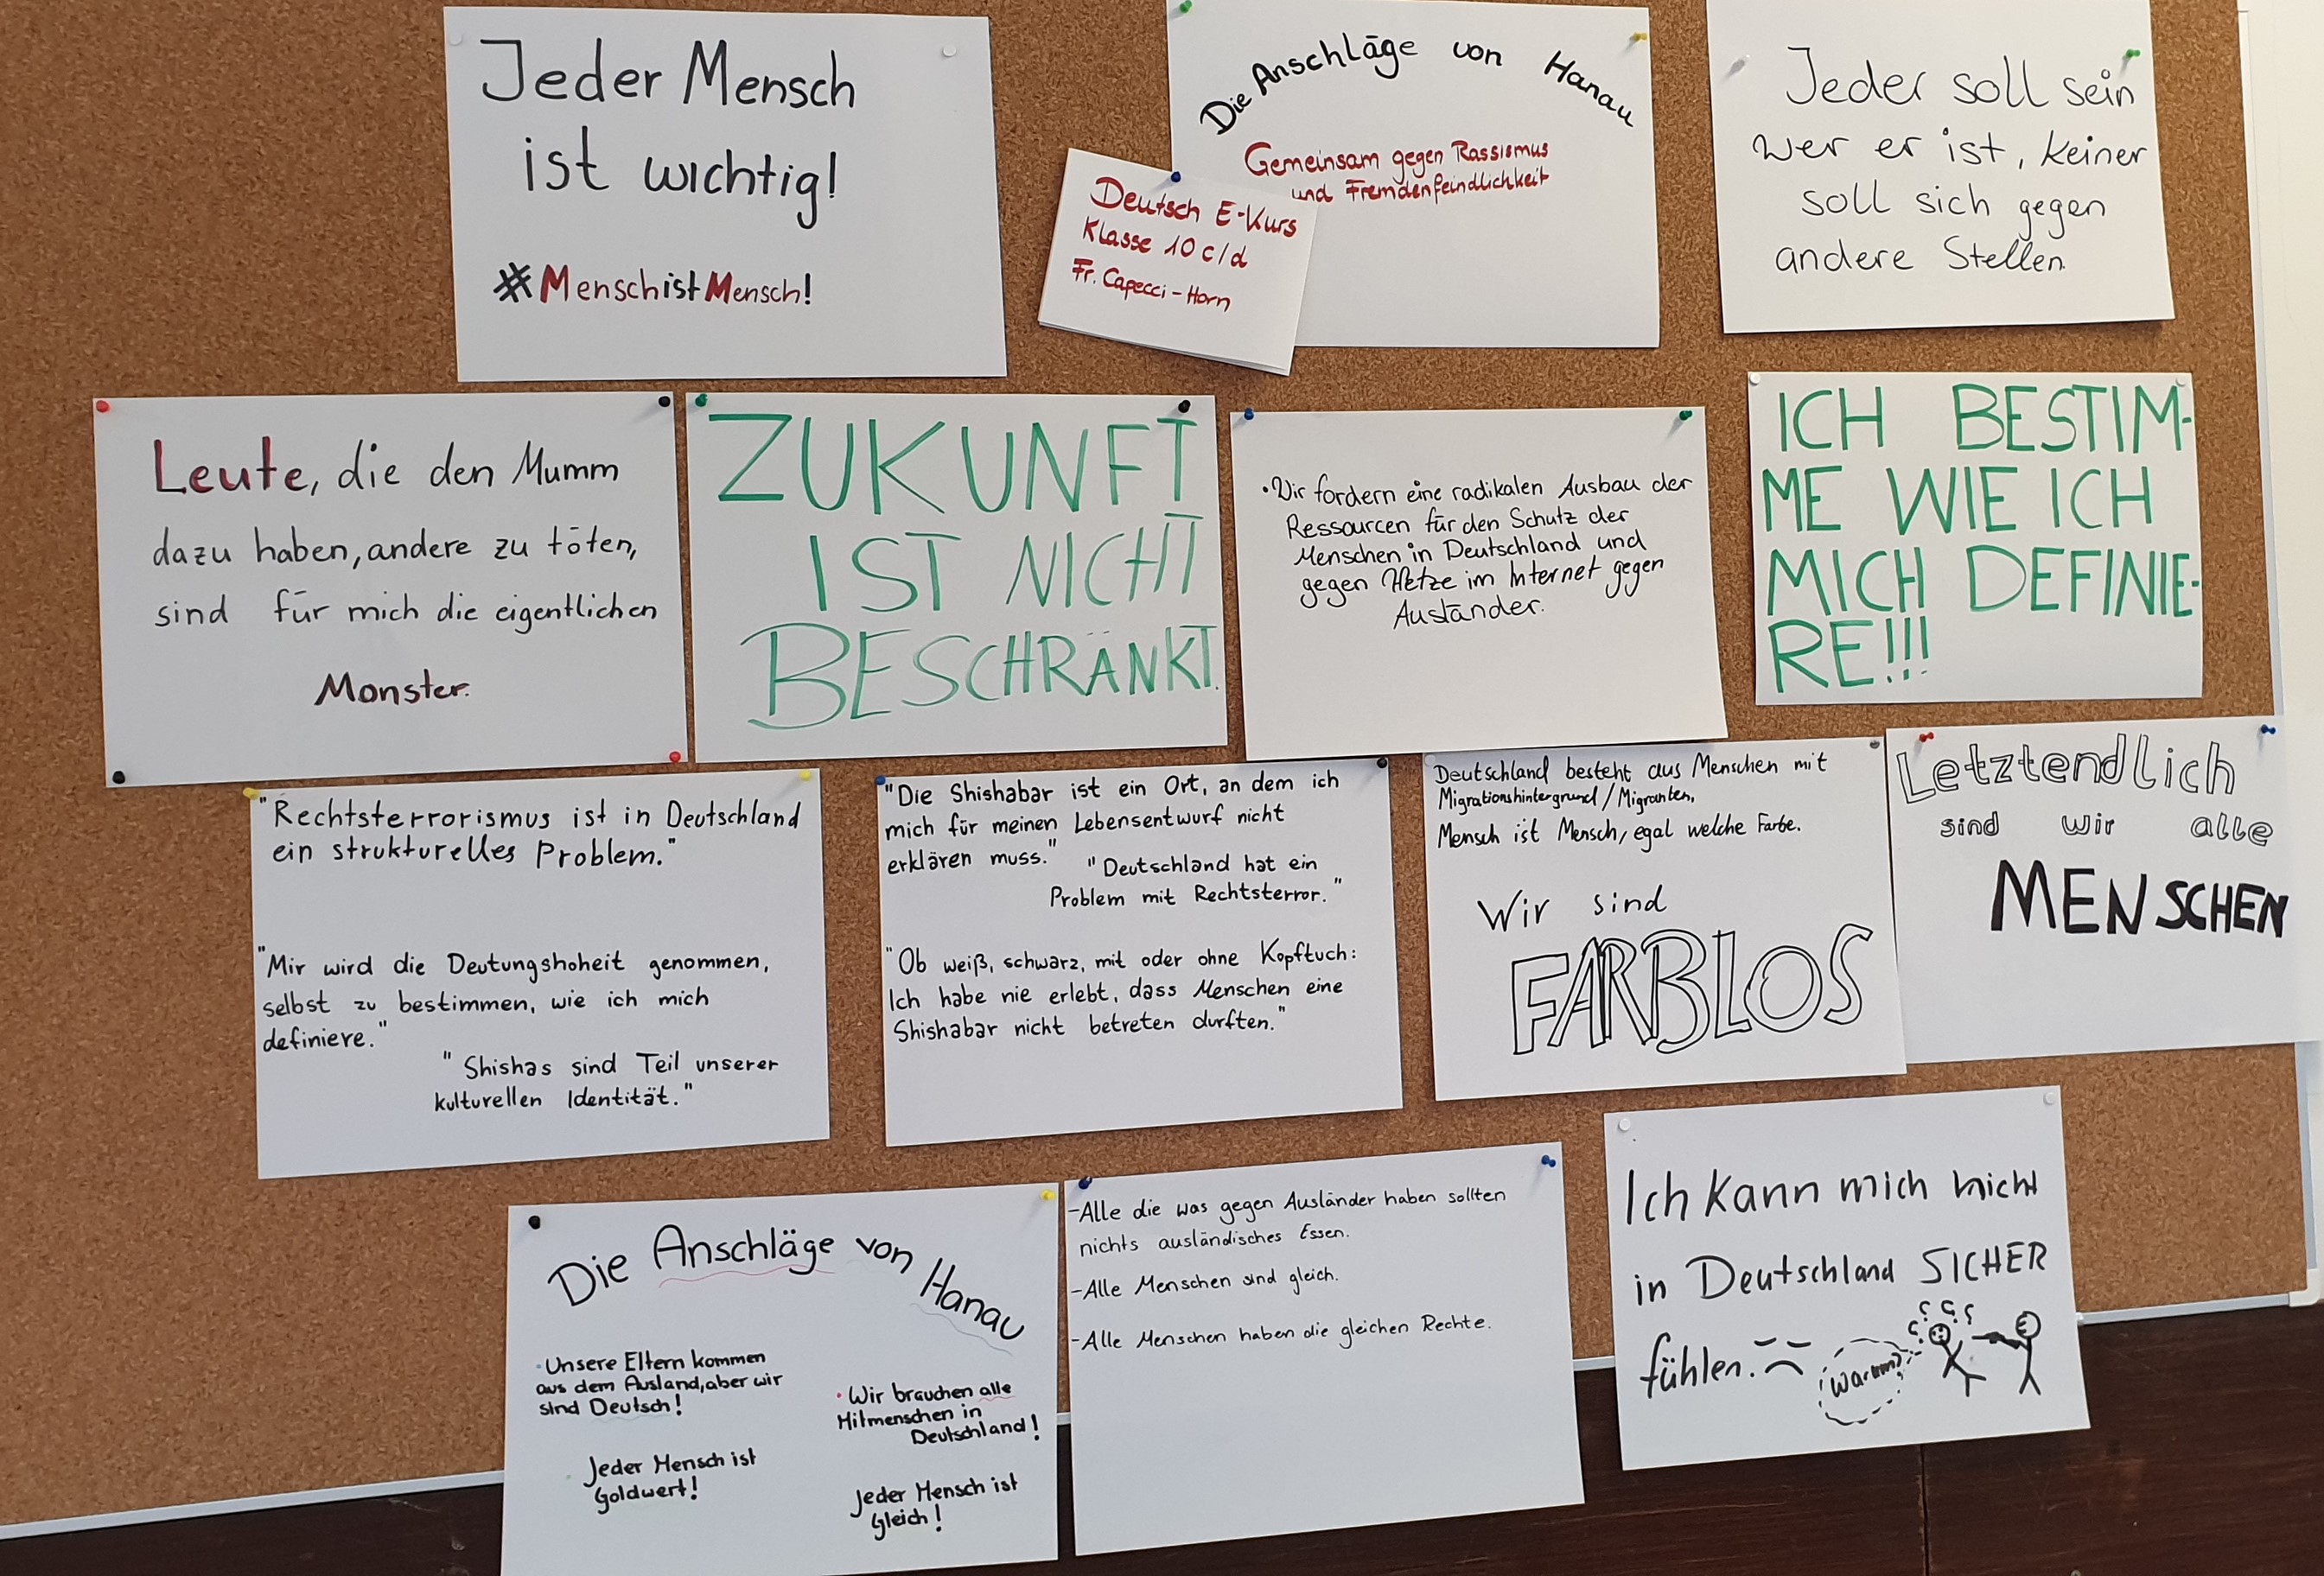 Jeder Mensch
ist wichtig!
#MenschistMensch!
Die Anschläge von Hanau
Gemeinsam gegen Rassismus
und Fremdenfeindlichkeit
Deutsch E-Kurs
Klasse 10 c/d
Fr. Capecci-Horn
Jeder soll sein
wer er ist, keiner
soll sich gegen
andere Stellen.
Leute, die den Mumm
dazu haben, andere zu töten,
sind für mich die eigentlichen
Monster.
ZUKUNFT
IST NICHT
BESCHRÄNKT.
• Wir fordern eine radikalen Ausbau der
Ressourcen für den Schutz der
Menschen in Deutschland und
gegen Hetze im Internet gegen
Ausländer.
ICH BESTIM-
ME WIE ICH
MICH DEFINIE-
RE!!!
"Rechtsterrorismus ist in Deutschland
ein strukturelles Problem."
"Mir wird die Deutungshoheit genommen,
selbst zu bestimmen, wie ich mich
definiere."
"Shishas sind Teil unserer
kulturellen Identität."
"Die Shishabar ist ein Ort, an dem ich
mich für meinen Lebensentwurf nicht
erklären muss."
"Deutschland hat ein
Problem mit Rechtsterror."
"Ob weiß, schwarz, mit oder ohne Kopftuch:
Ich habe nie erlebt, dass Menschen eine
Shishabar nicht betreten durften."
Deutschland besteht aus Menschen mit
Migrationshintergrund/Migranten,
Mensch ist Mensch, egal welche Farbe.
Wir sind
FARBLOS
Letztendlich
sind wir alle
MENSCHEN
Die Anschläge von Hanau
• Unsere Eltern kommen
aus dem Ausland, aber wir
sind Deutsch!
• Jeder Mensch ist
Goldwert!
• Wir brauchen alle
Mitmenschen in
Deutschland!
Jeder Mensch ist
Gleich!
-Alle die was gegen Ausländer haben sollten
nichts ausländisches Essen.
-Alle Menschen sind gleich.
-Alle Menschen haben die gleichen Rechte.
Ich kann mich nicht
in Deutschland SICHER
fühlen.
? ? ? ?
Warum?